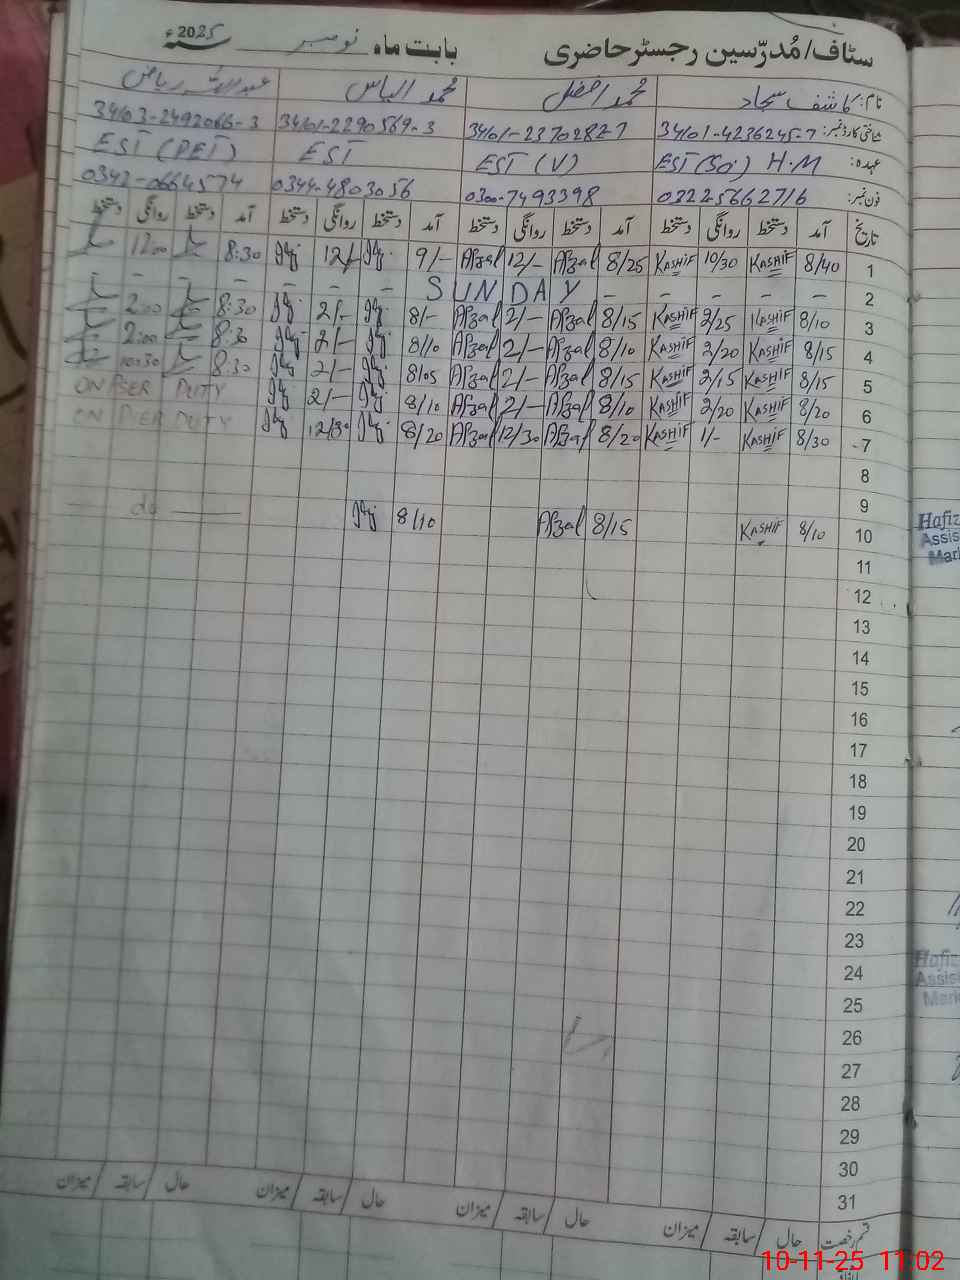 سٹاف/مُدرّسین رجسٹر حاضری بابت ماہ نومبر 2025ء
نام: کاشف سجاد محمد افضل محمد الیاس
شناختی کارڈ نمبر: 34101-4236245-7 34101-2370282-7 34101-2290569-3 34103-2492066-3
عہدہ: EST (Sc) H.M EST (V) EST EST (PET)
فون نمبر: 03225662716 0300-7493398 0344-4803056 0342-0664574
تاریخ آمد دستخط روانگی دستخط آمد دستخط روانگی دستخط آمد دستخط روانگی دستخط آمد دستخط روانگی دستخط
1 8/40 KASHIF 10/30 KASHIF 8/25 Afzal 12/- Afzal 9/- 12/- 8:30 12:00
2 – – – SUNDAY – – – – –
3 8/10 KASHIF 2/25 KASHIF 8/15 Afzal 2/- Afzal 8/- 2/- 8:30 2:00
4 8/15 KASHIF 2/20 KASHIF 8/10 Afzal 2/- Afzal 8/10 2/- 8:30 2:00
5 8/15 KASHIF 2/15 KASHIF 8/15 Afzal 2/- Afzal 8/05 2/- 8:30 10:30
6 8/20 KASHIF 2/20 KASHIF 8/10 Afzal 2/- Afzal 8/10 2/- ON PSER DUTY
7 8/30 KASHIF 1/- KASHIF 8/20 Afzal 12/30 Afzal 8/20 12/30 ON PSER DUTY
8
9
10 8/10 KASHIF 8/15 Afzal 8/10 do
11
12
13
14
15
16
17
18
19
20
21
22
23
24
25
26
27
28
29
30
31
قسم رخصت حال سابقہ میزان حال سابقہ میزان حال سابقہ میزان حال سابقہ میزان
Hafiz
Assis
Mark
Hafiz
Assis
Mark
10-11-25 11:02